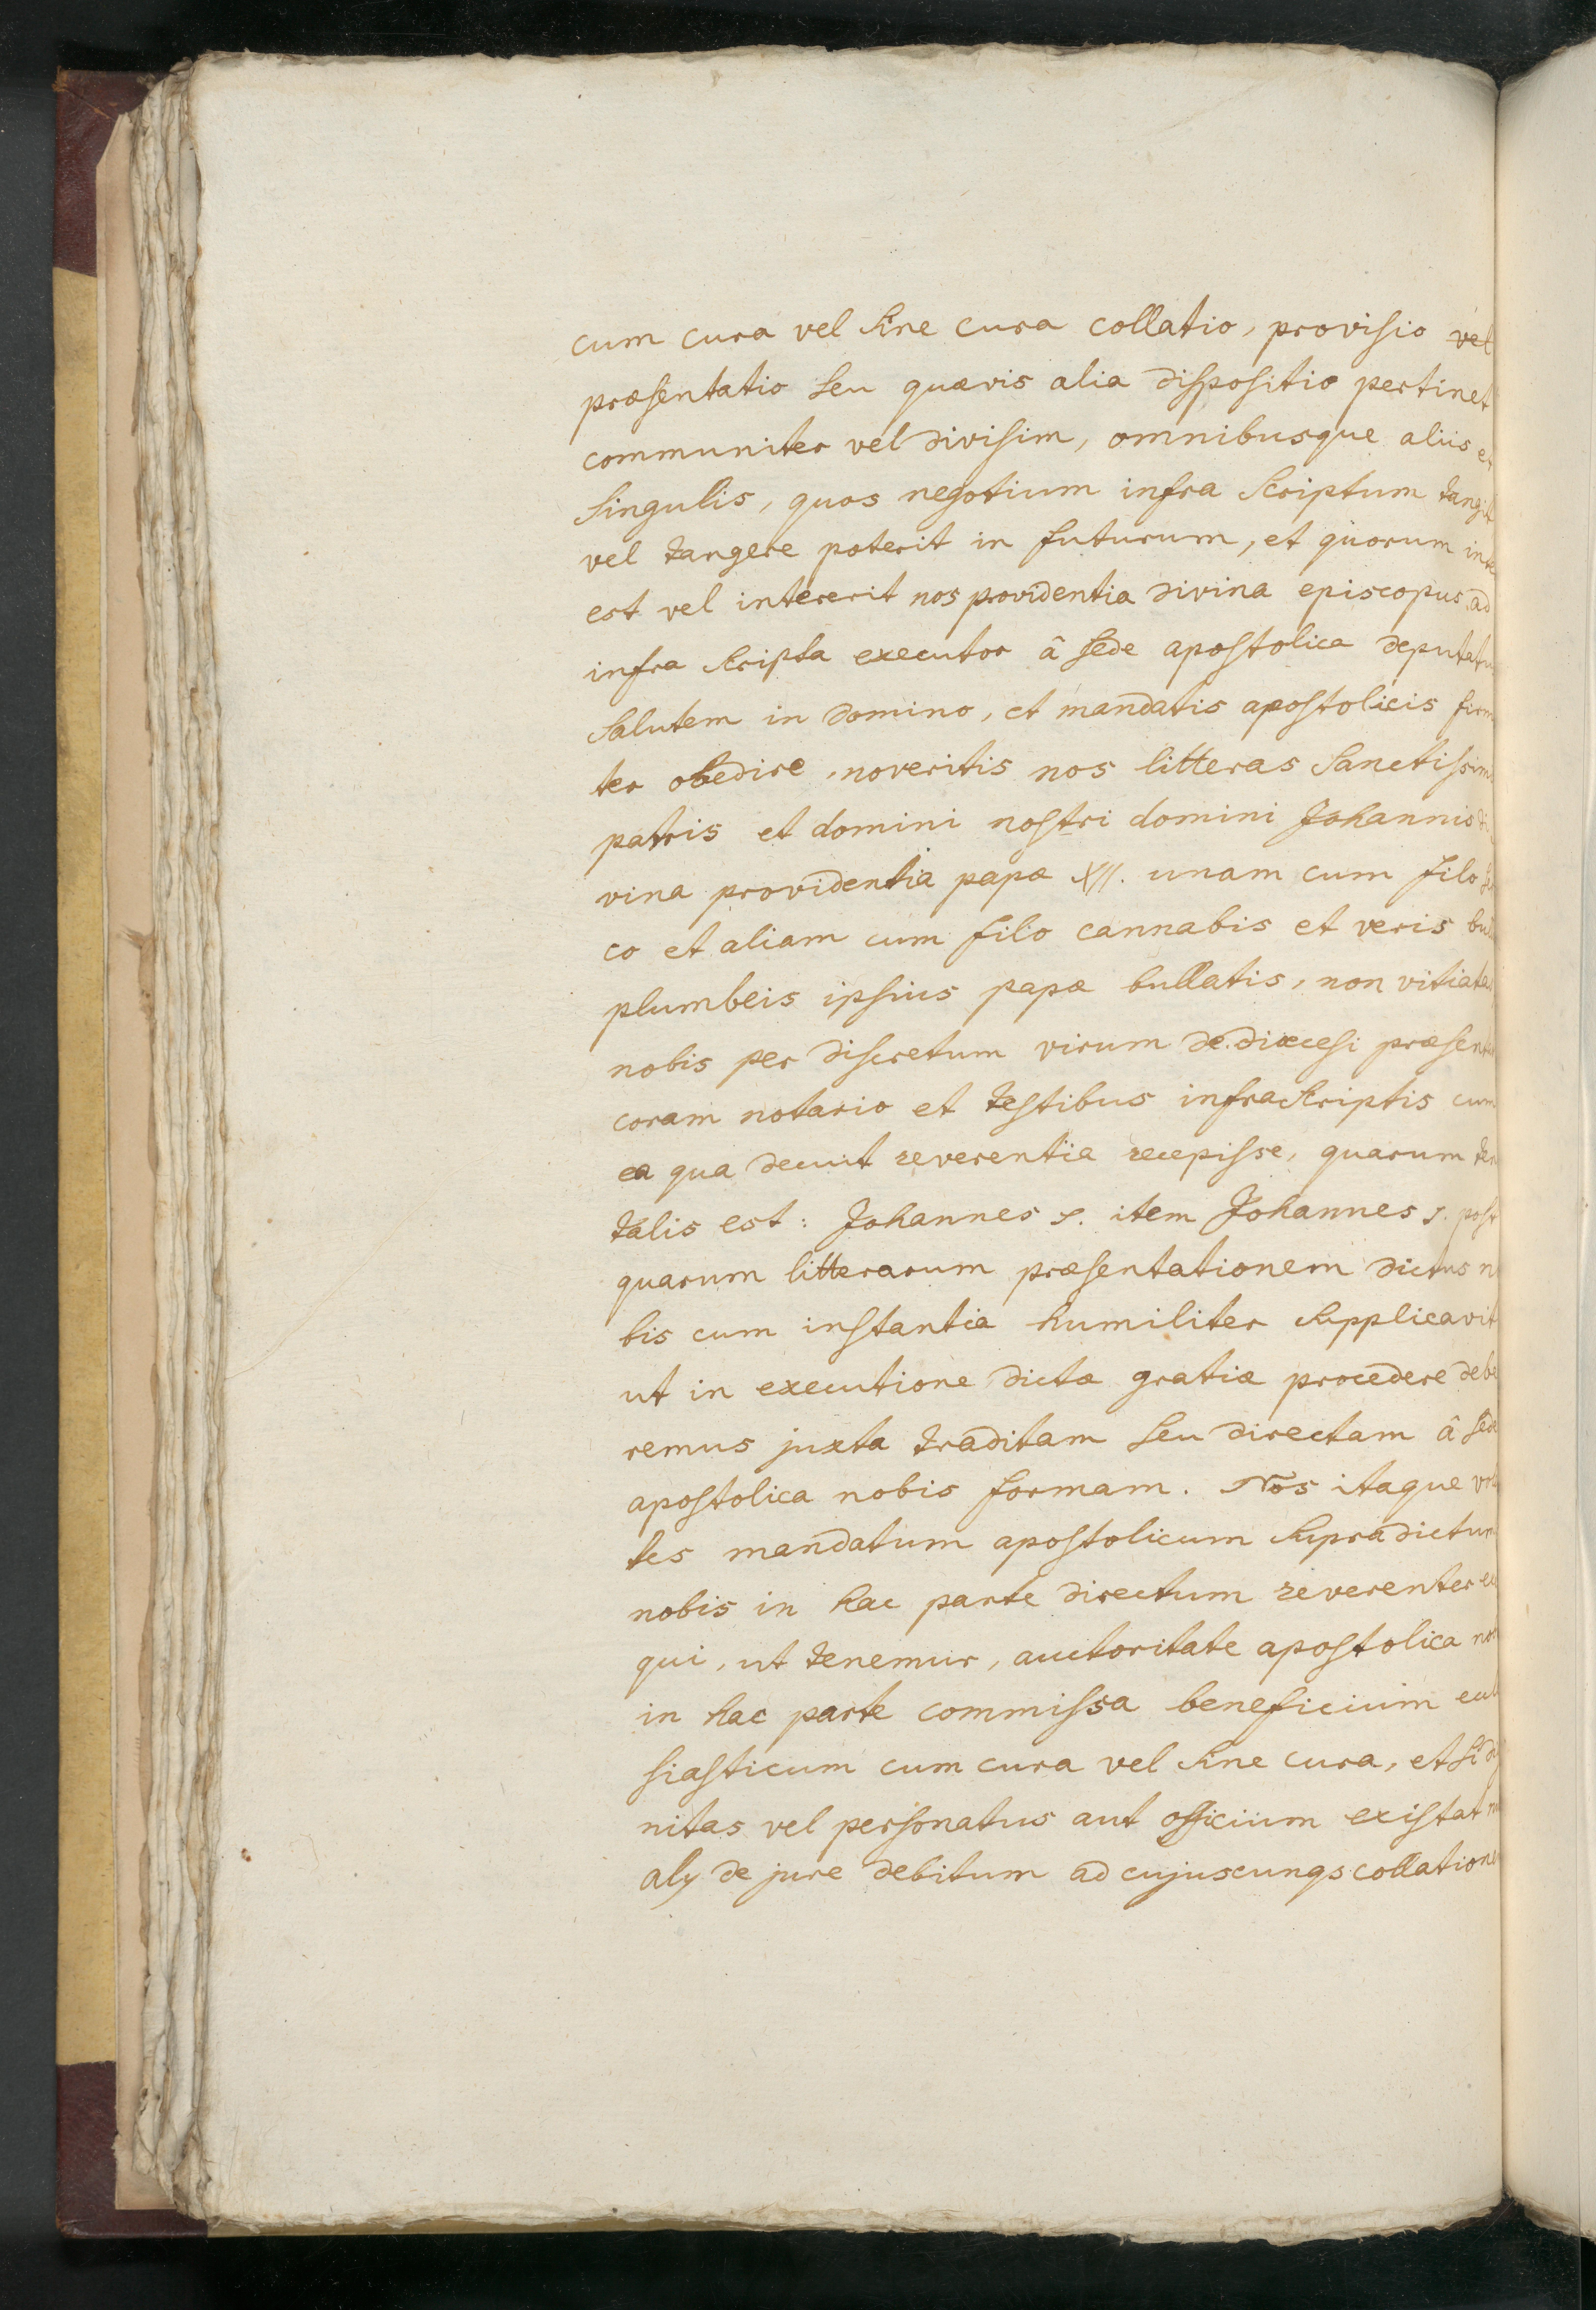 cum cura vel sine cura collatio, provisio vel
præsentatio seu quævis alia dispositio pertinet
communiter vel divisim, omnibusque aliis et
singulis, quos negotium infra scriptum tangit
vel tangere poterit in futurum, et quorum
est vel intererit nos providentia divina episcopus ad
infra scripta executor â sede apostolica deputatu
salutem in domino, et mandatis apostolicis firm
ter obedire, noveritis nos litteras sanctissim
patris et domini nostri domini Johannis di
vina providentia papæ XII. unam cum filo
co et aliam cum filo cannabis et veris bul
plumbeis ipsius papæ bullatis, non vitiatas
nobis per discretum virum de diœcesi præsent
coram notario et testibus infrascriptis cum
ea qua decuit reverentia recepisse, quarum ten
talis est: Johannes s. item Johannes s. post
quarum litterarum præsentationem dictus n
bis cum instantia humiliter supplicavit
ut in executione dictæ gratiæ procedere debe
remus juxta traditam seu directam â sede
apostolica nobis formam. Nos itaque vol
tes mandatum apostolicum supradictum
nobis in hac parte directum reverenter ex
qui, ut tenemur, auctoritate apostolica nob
in hac parte commissa beneficium
siasticum cum cura vel sine cura, et si di
nitas vel personatus aut officium existat
alÿ de jure debitum ad cujuscunqs collationem